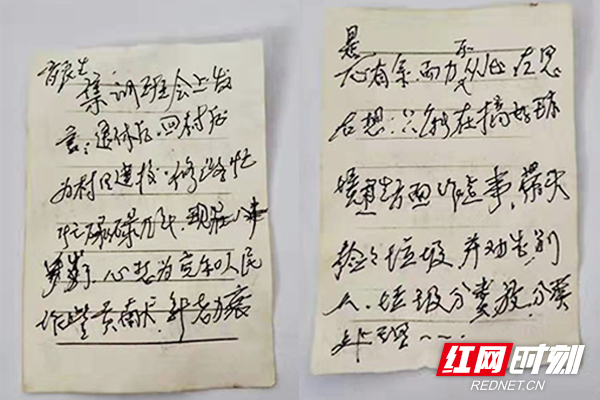 集训班会上发
言：退休后，回村后
为村里建校、修路忙
忙碌碌几年，现在八十
岁了，心想为党和人民
作些贡献，年老力衰
是
心有余，而力不从心，左思
右想：只能在搞好环
境卫生方面作些事，带头
捡垃圾，并劝告别
人，垃圾分类放，分类
处理……
红网时刻
REDNET.CN